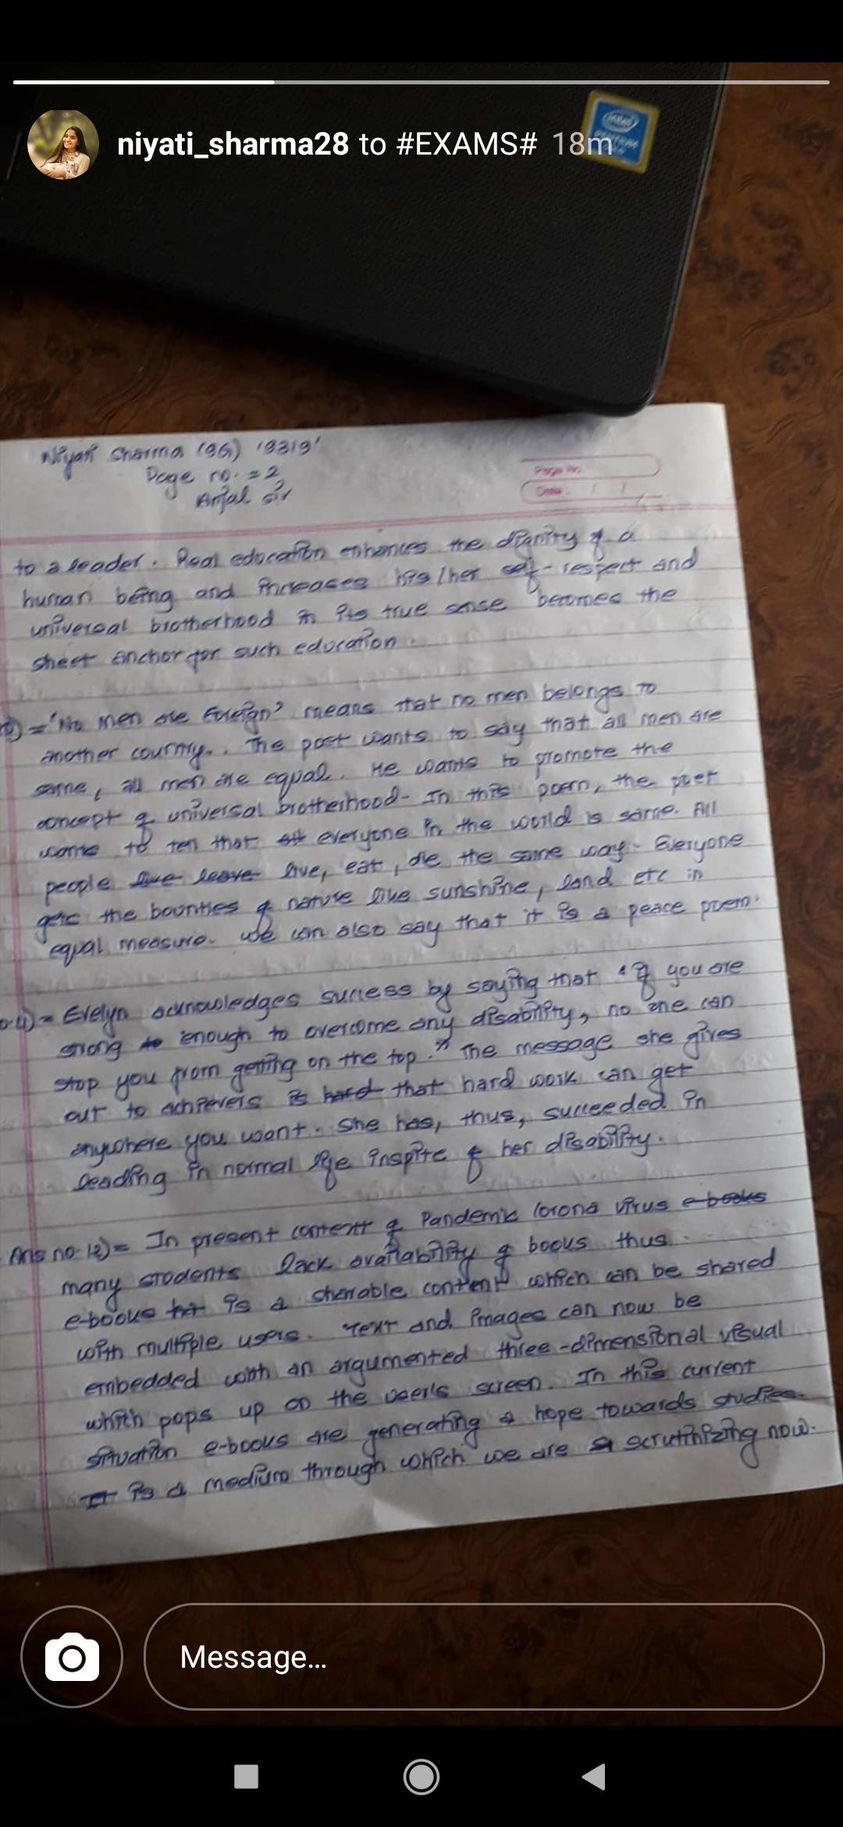 niyati_sharma28 to #EXAMS# 18m
intel
PENTIUM
Niyati Sharma (9G) '9319'
Page no. = 2
Anjal sir
Page No.
Date: / /
to a leader. Real education enhances the dignity of a
human being and increases his/her self-respect and
universal brotherhood in its true sense becomes the
sheet anchor for such education.
= 'No Men are Foreign' means that no men belongs to
another country. The poet wants to say that all men are
same, all men are equal. He wants to promote the
concept of universal brotherhood. In this poem, the poet
wants to tell that everyone in the world is same. All
people live leave live, eat, die the same way. Everyone
gets the bounties of nature like sunshine, land etc in
equal measure. We can also say that it is a peace poem.
= Evelyn acknowledges success by saying that "If you are
strong to enough to overcome any disability, no one can
stop you from getting on the top." The message she gives
out to achievers is hard that hard work can get
anywhere you want. She has, thus, succeeded in
leading in normal life inspite of her disability.
Ans no. 12) = In present context of Pandemic Corona Virus e-books
many students lack availability of books thus
e-books is a sharable content which can be shared
with multiple users. Text and images can now be
embedded with an argumented three-dimensional visual
which pops up on the user's screen. In this current
situation e-books are generating a hope towards studies.
It is a medium through which we are scrutinizing now.
Message...